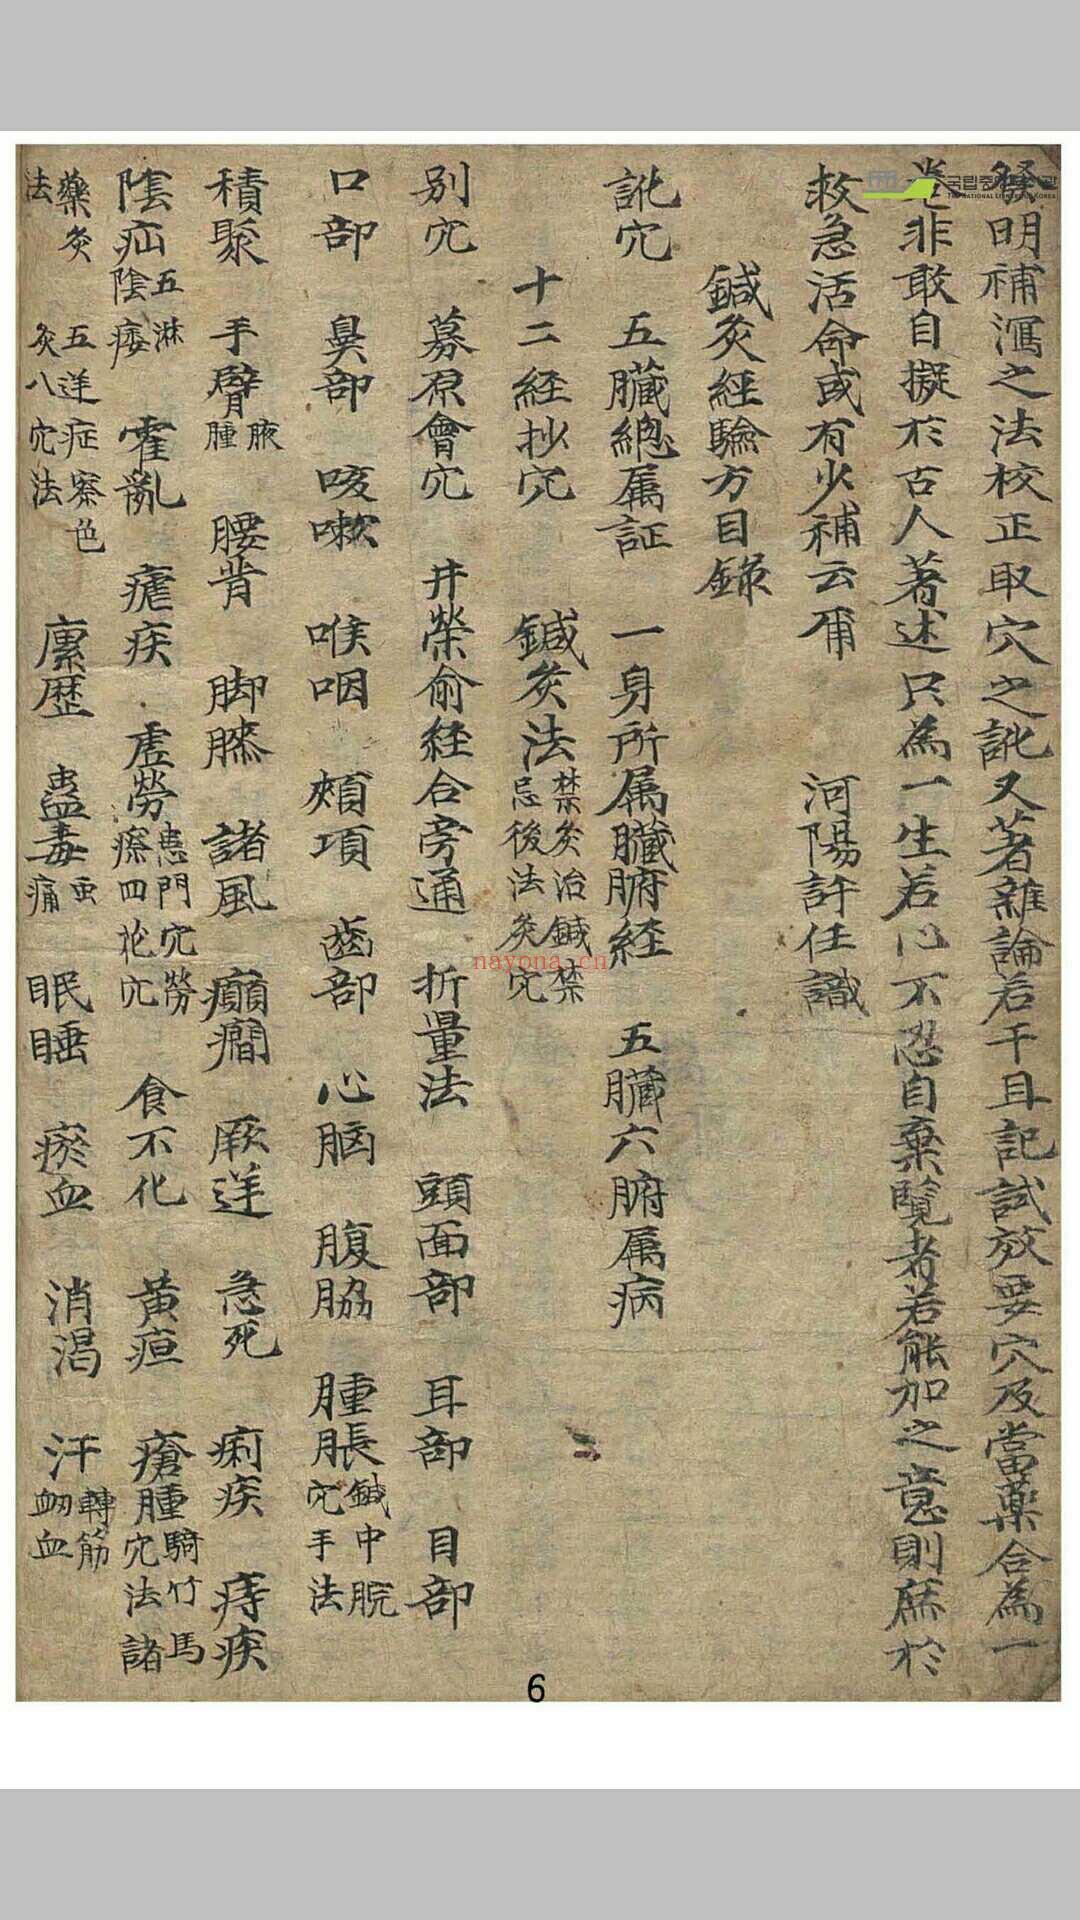 發明補瀉之法校正取穴之訛又著雜論若干且記試效要穴及當藥合為一
卷非敢自擬於古人著述只為一生若心不忍自棄覽者若能加之意則庶於
救急活命或有少補云爾 河陽許任識
鍼灸經驗方目錄
訛穴 五臟總属証 一身所属臟腑経 五臟六腑属病
十二経抄穴 鍼灸法 禁灸治鍼禁
忌後法灸穴
別穴 募原會穴 井榮俞経合旁通 折量法 頭面部 耳部 目部
口部 鼻部 咳嗽 喉咽 頰項 齒部 心胸 腹脇 腫脹 鍼中脘
穴手法
積聚 手臂 腋
腫 腰背 脚膝 諸風 癲癎 厥逆 急死 痢疾 痔疾
陰疝 五淋
陰痿 霍亂 瘧疾 虛勞 患門穴勞
瘵四花穴 食不化 黃疸 瘡腫 騎竹馬
穴法諸
藥灸
法 五逆症察色
灸八穴法 瘰歷 蠱毒 虫
痛 眠睡 瘀血 消渇 汗 轉筋
衂血
국립중앙도서관
THE NATIONAL LIBRARY OF KOREA
nayona.cn
6